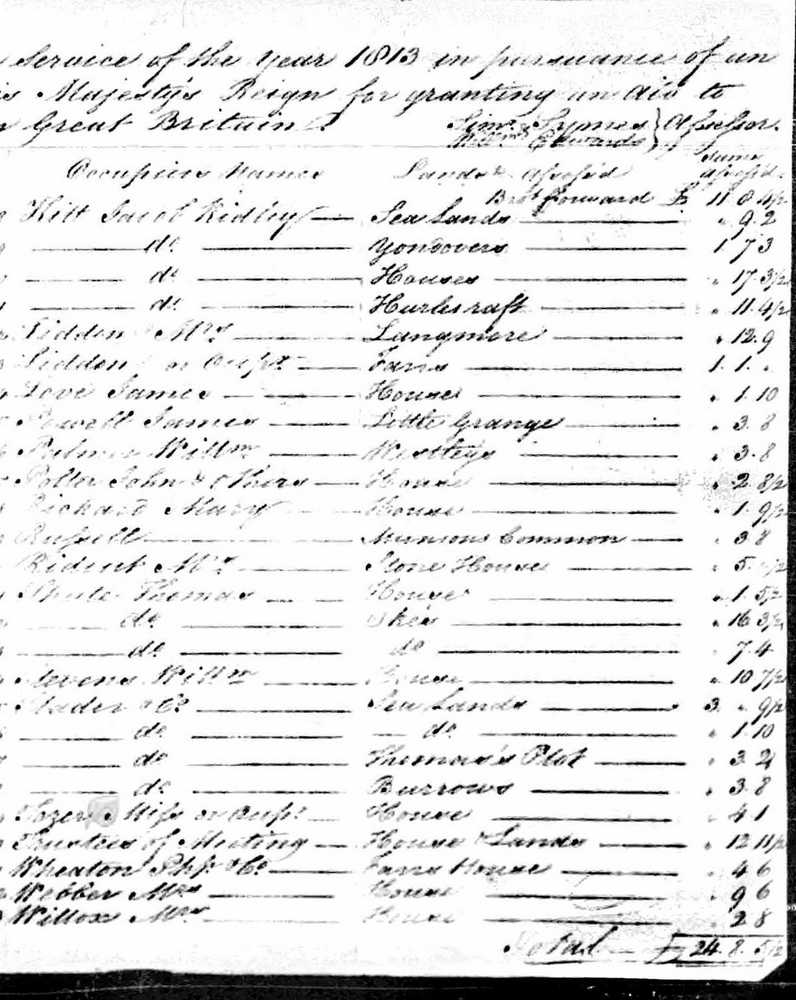 Service of the Year 1813 in pursuance of an
is Majesty's Reign for granting an Aid to
Great Britain Symes } Assessors
Willm Edwards
Occupiers Names Lands &c Assess'd Sums Assess'd
Brot forward £ 11 8 4½
Hitt Jacob Ridley Sea Lands " 9. 2
do Yondovers 1 7 3
do Houses " 17. 3½
do Hurlecraft " 11. 4½
Liddon Mrs Langmore " 12. 9
Liddon or Occupr Farm 1. 1. "
Love James House " 1. 10
Powell James Little Grange " 3. 8
Palmer Willm Westleys " 3. 8
Potter John & Others House " 2. 8½
Pickard Mary House " 1. 9½
Russell Munsons Common " 3 8
Rident Stone House " 5.
Shute Thomas House " 1. 5½
do " 16 3½
do do " 7. 4
Stevens Willm House " 10 7½
Slader & Co Sea Lands 3. " 9½
do do " 1. 10
do Thomas's Plot " 3. 2
do Burrows " 3. 8
Miss or Occupr House " 4. 1
Trustees of Meeting House & Lands " 12 11½
Wheaton Php & Co Farm House " 4 6
Webber Mrs House " 9 6
Willox Mrs House 2 8
Total £ 24. 8. 5½